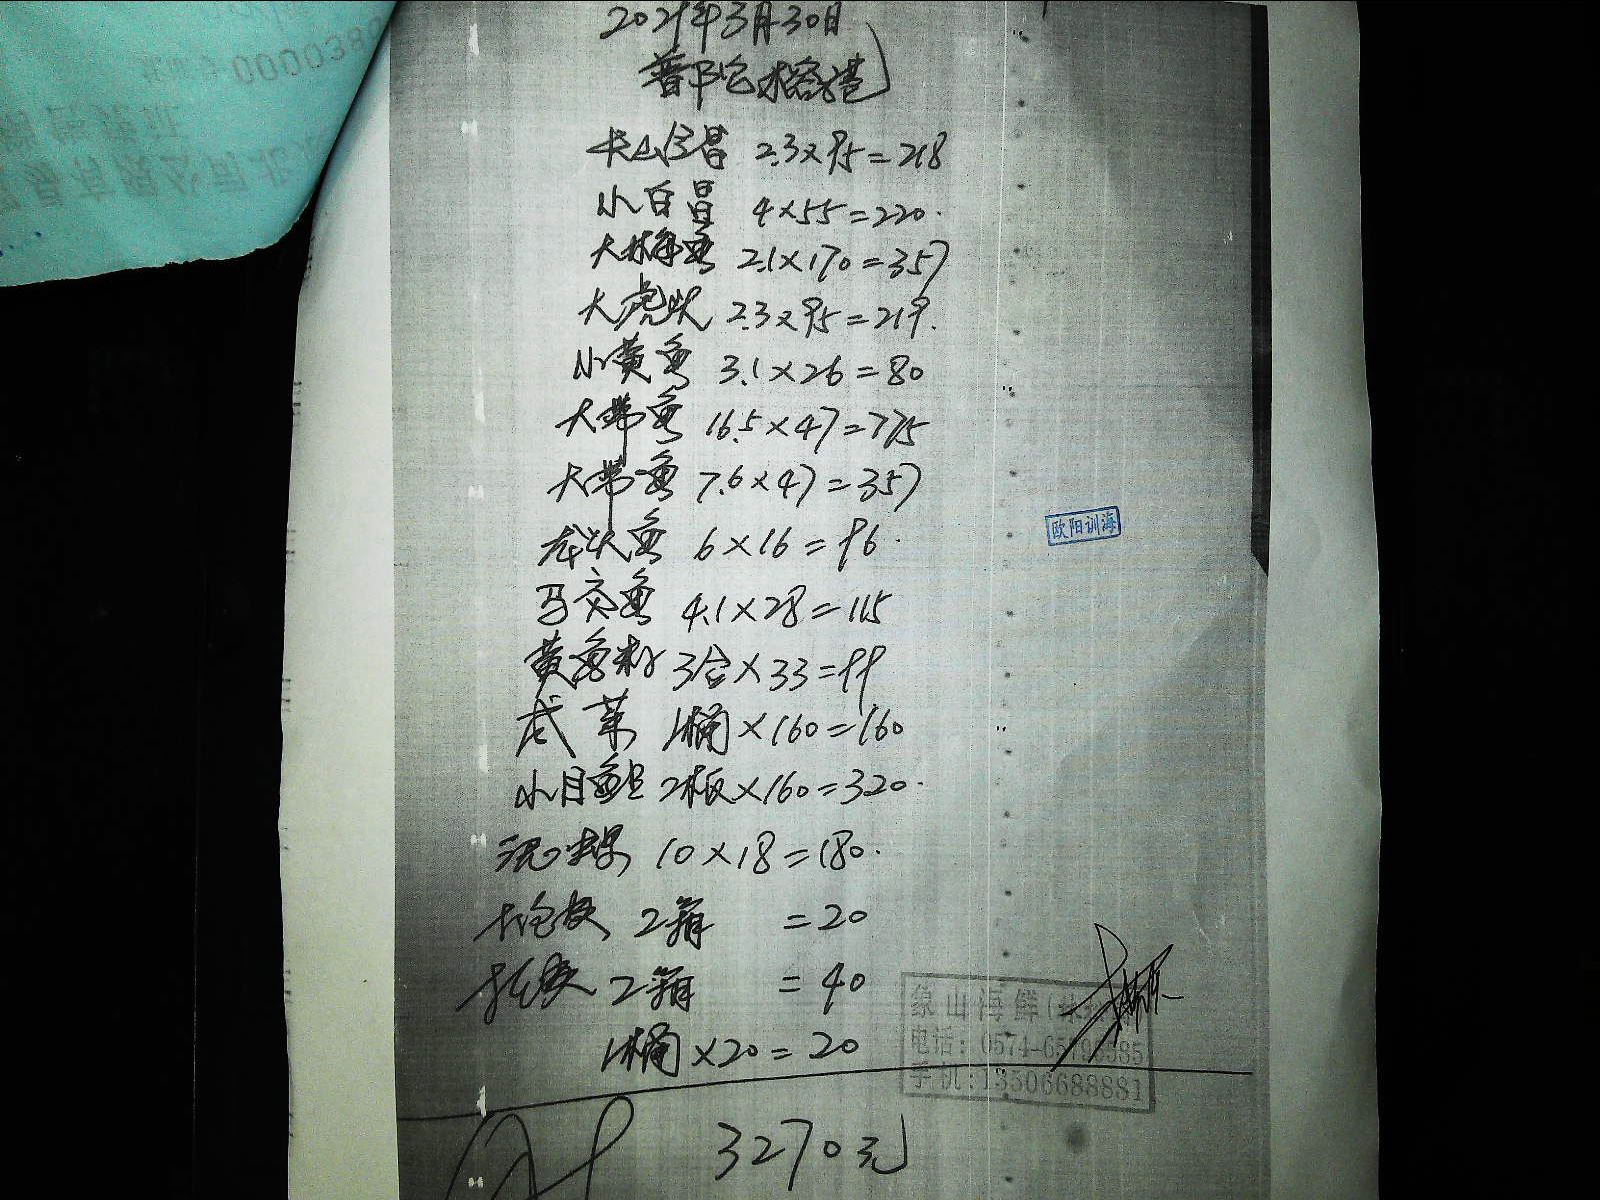 2021年3月30日
普陀榕港
长山仓昌 2.3×95=218
小白昌 4×55=220.
大梅鱼 2.1×170=357
大虎头 2.3×95=219.
小黄鱼 3.1×26=80
大带鱼 16.5×47=775
大带鱼 7.6×47=357
龙头鱼 6×16=96.
马交鱼 4.1×28=115
黄鱼籽 3合×33=99
1桶×160=160
小目鱼旦 2板×160=320.
10×18=180.
2箱 =20
2箱 =40
1桶×20=20
3270元
欧阳训海
象山海鲜
电话: 0574-65
手机:13506688881
0000380